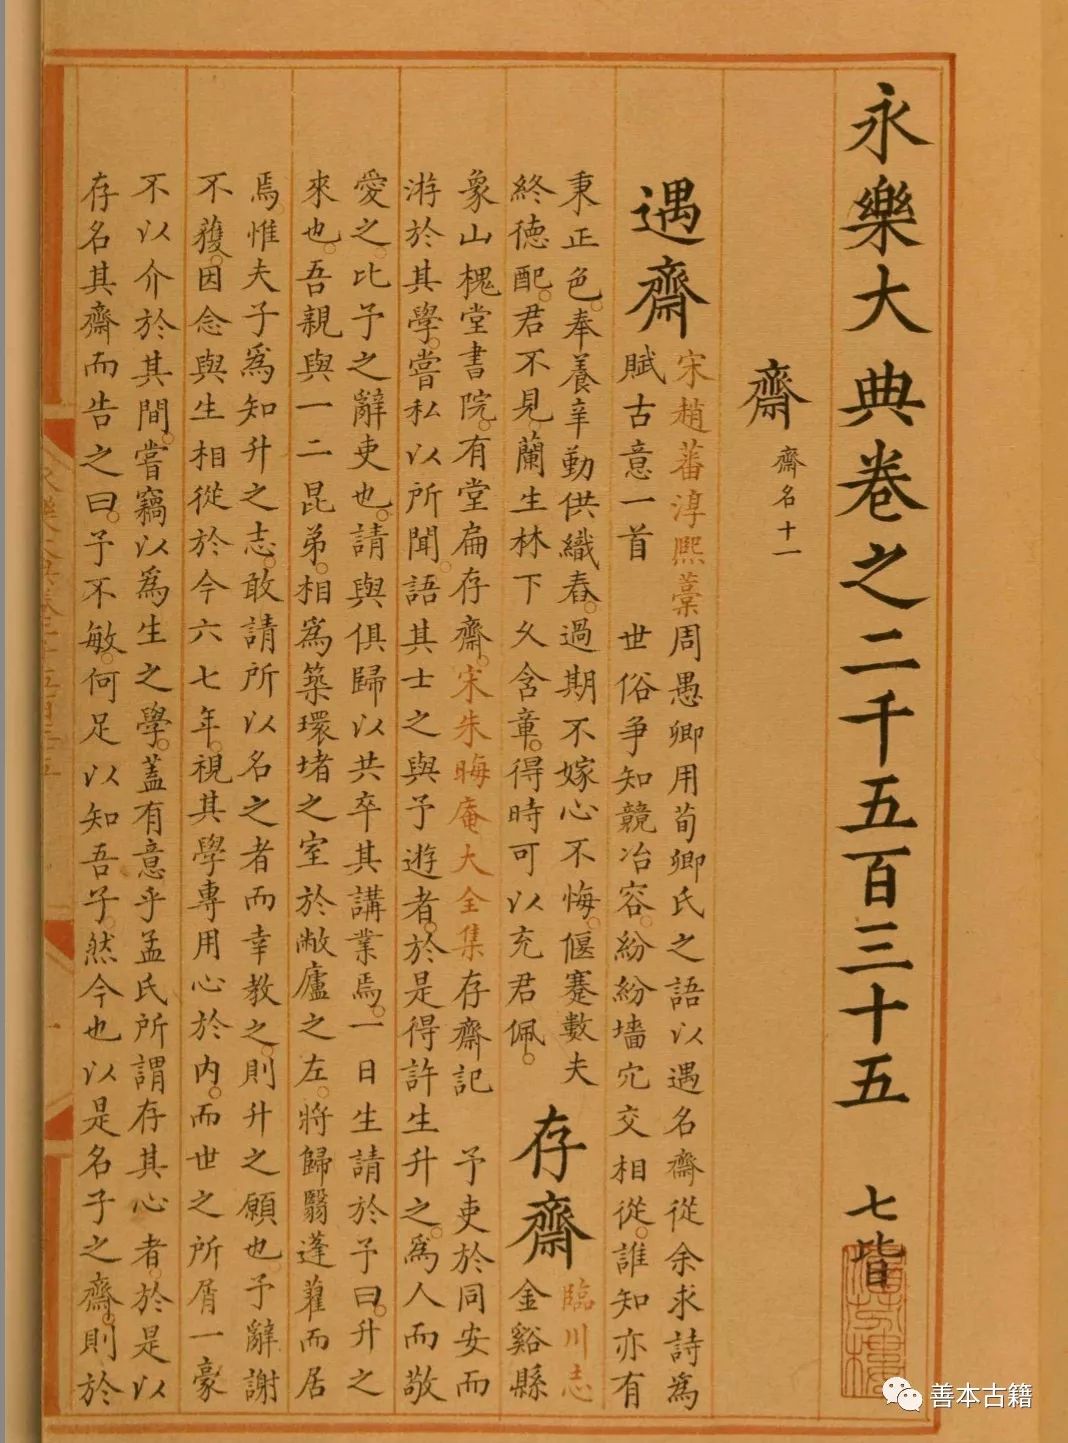 永樂大典卷之二千五百三十五 七皆
齋 齋名十一
遇齋
宋趙蕃淳熙藁周愚卿用荀卿氏之語以遇名齋從余求詩為
賦古意一首 世俗爭知競冶容紛紛墻穴交相從誰知亦有
秉正色奉養辛勤供織舂過期不嫁心不悔偃蹇數夫
終德配君不見蘭生林下久含章得時可以充君佩
存齋
臨川志
金谿縣
象山槐堂書院有堂扁存齋宋朱晦庵大全集存齋記 予吏於同安而
游於其學嘗私以所聞語其士之與予遊者於是得許生升之為人而敬
愛之比予之辭吏也請與俱歸以共卒其講業焉一日生請於予曰升之
來也吾親與一二昆弟相為築環堵之室於敝廬之左將歸翳蓬藋而居
焉惟夫子為知升之志敢請所以名之者而幸教之則升之願也予辭謝
不獲因念與生相從於今六七年視其學專用心於內而世之所屑一豪
不以介於其間嘗竊以為生之學蓋有意乎孟氏所謂存其心者於是以
存名其齋而告之曰予不敏何足以知吾子然今也以是名子之齋則於
善本古籍